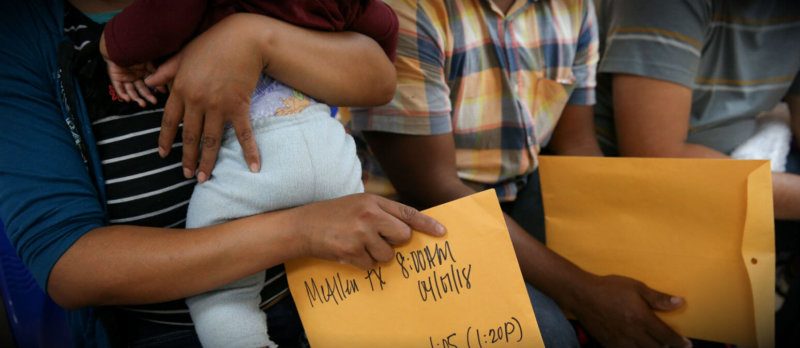 McAllen TX 8:00AM
04/07/18
1:05 (1:20P)